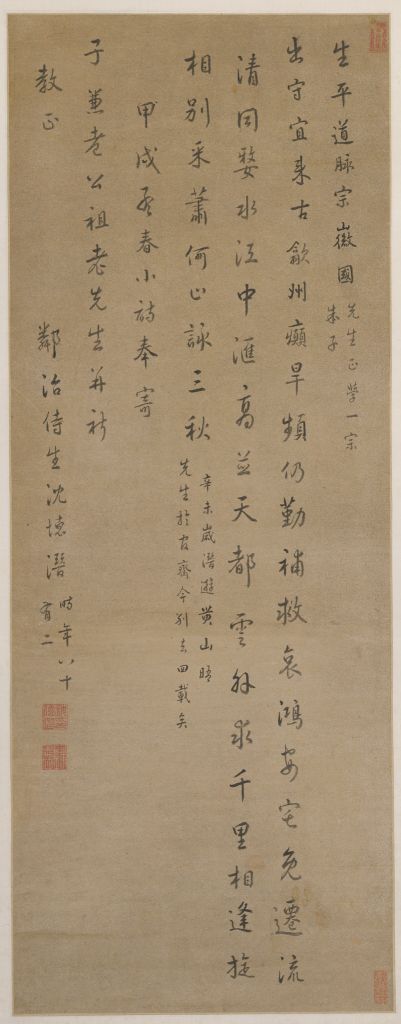 生平道脉宗徽國
朱子
先生正學一宗
出守宜來古歙州癘旱頻仍勤補救哀鴻安宅免遷流
清同婺水江中滙高並天都雲外求千里相逢旋
相別采蕭何止詠三秋
辛未歲潛遊黄山晤
先生於官齋今別去四載矣
甲戌春小詩奉寄
子兼老公祖老先生并祈
教正
鄰治侍生沈德潛
時年八十
有二